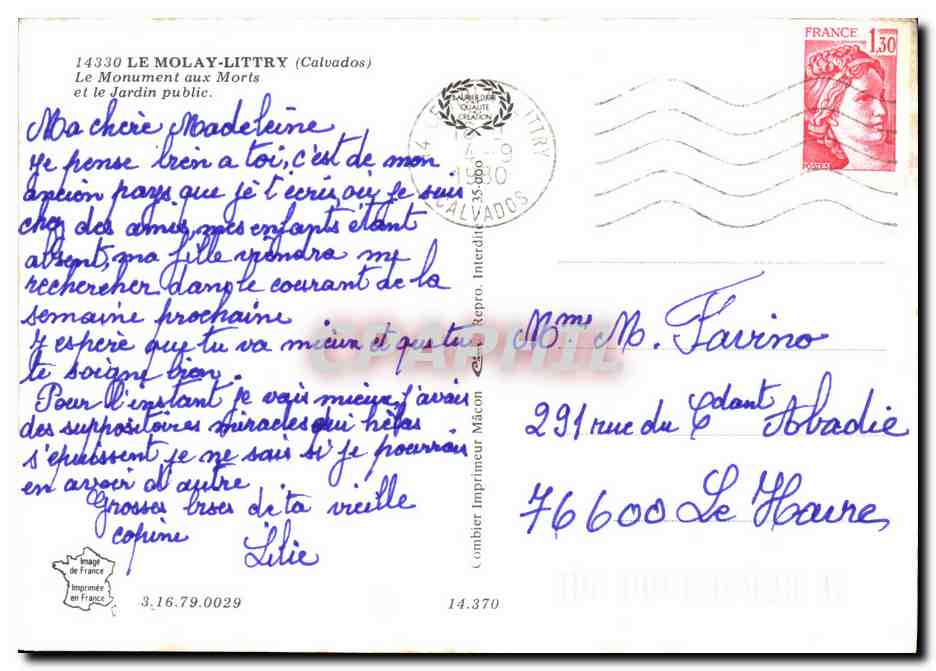 14330 LE MOLAY-LITTRY (Calvados)
Le Monument aux Morts
et le Jardin public.
Ma chère Madeleine
Je pense bien a toi, c'est de mon
ancien pays que je t'écris, où je suis
chez des amis, mes enfants étant
absent, ma fille viendra me
rechercher dans le courant de la
semaine prochaine
J'espère que tu va mieux et que tu
te soigne bien.
Pour l'instant je vais mieux, j'avais
des suppositoires miracles qui hélas
s'épuissent je ne sais si je pourrais
en avoir d'autre
Grosses bises de ta vieille
copine Lilie
Image
de France
Imprimée
en France
3.16.79.0029
14.370
Combier Imprimeur Mâcon
Repro. Interdite 35-000
QUALITÉ
CRÉATION
LITTRY
1980
CALVADOS
FRANCE
1,30
POSTES
CPAPHIL
Mme M. Favino
291 rue du Cdant Abadie
76600 Le Havre